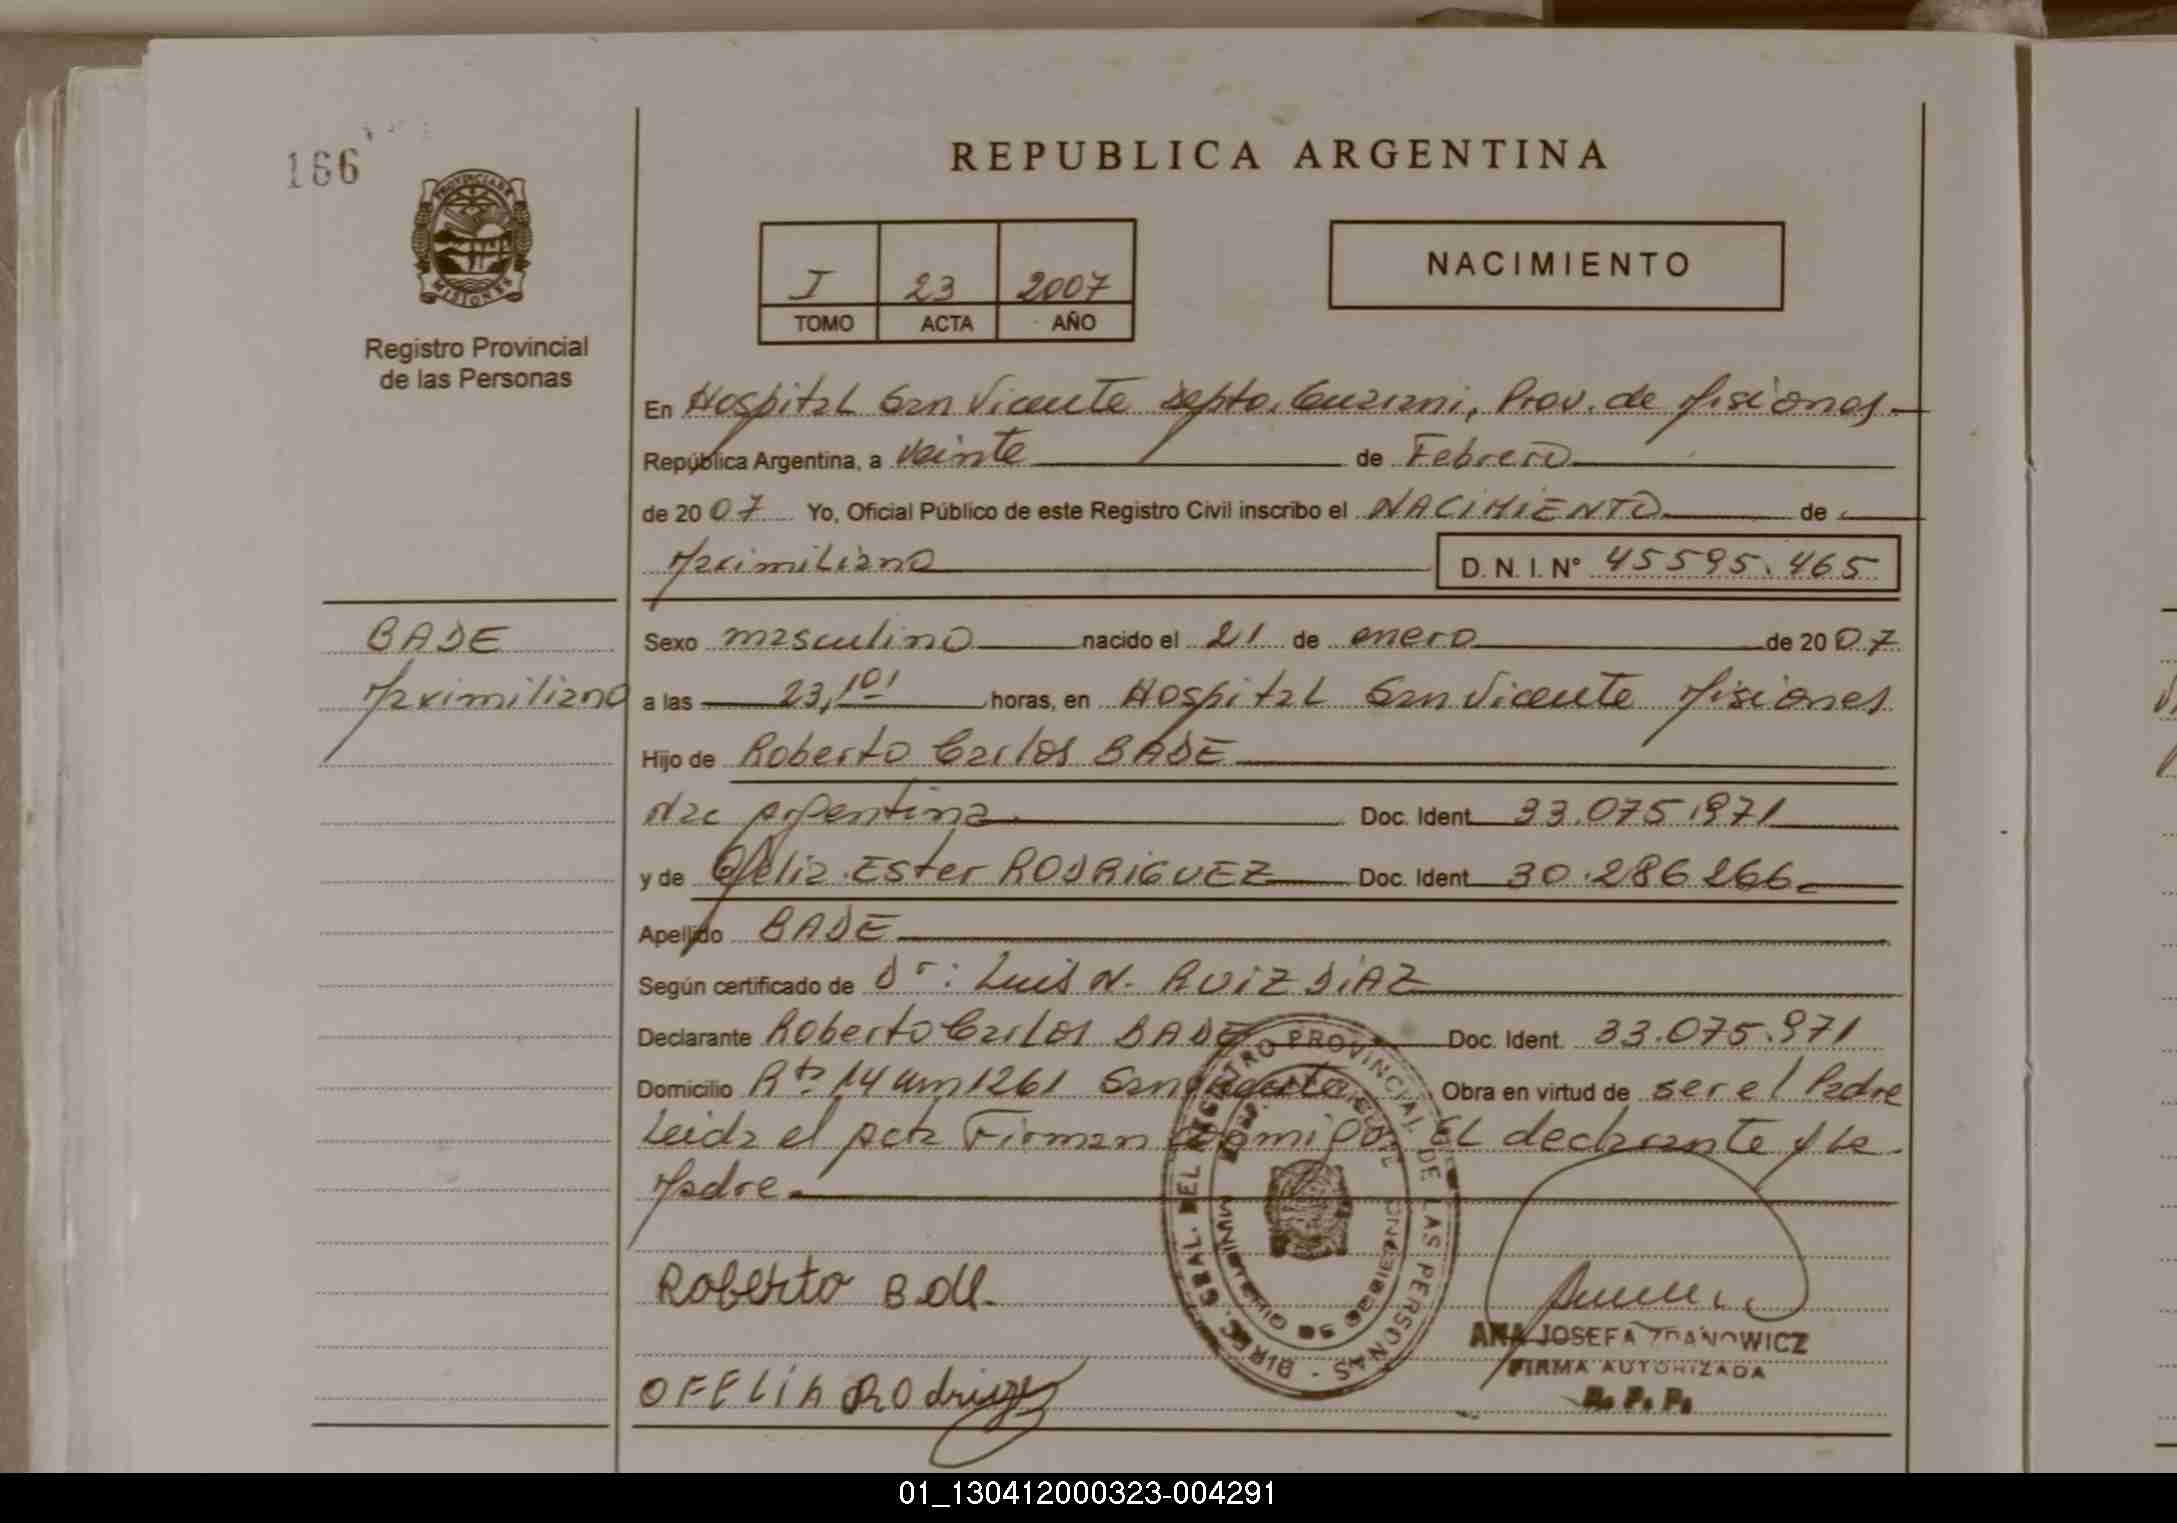 166
PROVINCIA DE
MISIONES
Registro Provincial
de las Personas
REPUBLICA ARGENTINA
I 23 2007
TOMO ACTA AÑO
NACIMIENTO
En Hospital San Vicente Depto. Guarani, Prov. de Misiones
República Argentina, a Veinte de Febrero
de 2007 Yo, Oficial Público de este Registro Civil inscribo el NACIMIENTO de
Maximiliano D.N.I. N° 45595.465
BADE
Maximiliano
Sexo masculino nacido el 21 de enero de 2007
a las 23,10 horas, en Hospital San Vicente Misiones
Hijo de Roberto Carlos BADE
Nac Argentina Doc. Ident. 33.075.971
y de Ofelia Ester RODRIGUEZ Doc. Ident. 30.286.266
Apellido BADE
Según certificado de Dr: Luis N. RUIZ DIAZ
Declarante Roberto Carlos BADE Doc. Ident. 33.075.971
Domicilio Rta 14 Km 1261 San Vicente Obra en virtud de ser el Padre
Leida el acta Firman conmigo EL declarante y la
Madre
DIREC. GRAL. DEL REGISTRO PROVINCIAL DE LAS PERSONAS
Roberto
ANA JOSEFA ZDANOWICZ
FIRMA AUTORIZADA
R. P. P.
OFELIA Rodriguez
01_130412000323-004291